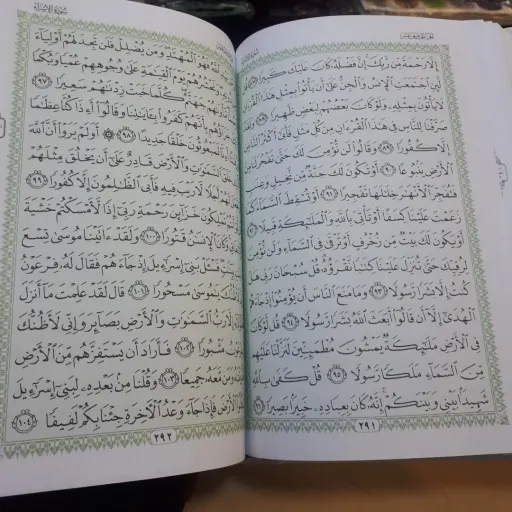 الجزء الخامس عشر
سورة الإسراء
إِلَّا رَحْمَةً مِّن رَّبِّكَ إِنَّ فَضْلَهُ كَانَ عَلَيْكَ كَبِيرًا ٨٧ قُل
لَّئِنِ اجْتَمَعَتِ الْإِنسُ وَالْجِنُّ عَلَىٰ أَن يَأْتُوا بِمِثْلِ هَٰذَا الْقُرْءَانِ
لَا يَأْتُونَ بِمِثْلِهِ وَلَوْ كَانَ بَعْضُهُمْ لِبَعْضٍ ظَهِيرًا ٨٨
صَرَّفْنَا لِلنَّاسِ فِي هَٰذَا الْقُرْءَانِ مِن كُلِّ مَثَلٍ فَأَبَىٰ أَكْثَرُ النَّاسِ
إِلَّا كُفُورًا ٨٩ وَقَالُوا لَن نُّؤْمِنَ لَكَ حَتَّىٰ تَفْجُرَ لَنَا
يَنبُوعًا ٩٠ أَوْ تَكُونَ لَكَ جَنَّةٌ مِّن نَّخِيلٍ وَعِنَبٍ
فَتُفَجِّرَ الْأَنْهَٰرَ خِلَٰلَهَا تَفْجِيرًا ٩١ أَوْ تُسْقِطَ السَّمَاءَ كَمَا
زَعَمْتَ عَلَيْنَا كِسَفًا أَوْ تَأْتِيَ بِاللَّهِ وَالْمَلَٰئِكَةِ قَبِيلًا ٩٢
أَوْ يَكُونَ لَكَ بَيْتٌ مِّن زُخْرُفٍ أَوْ تَرْقَىٰ فِي السَّمَاءِ وَلَن نُّؤْمِنَ
لِرُقِيِّكَ حَتَّىٰ تُنَزِّلَ عَلَيْنَا كِتَٰبًا نَّقْرَؤُهُ قُلْ سُبْحَانَ رَبِّي هَلْ
كُنتُ إِلَّا بَشَرًا رَّسُولًا ٩٣ وَمَا مَنَعَ النَّاسَ أَن يُؤْمِنُوا إِذْ جَاءَهُمُ
الْهُدَىٰ إِلَّا أَن قَالُوا أَبَعَثَ اللَّهُ بَشَرًا رَّسُولًا ٩٤ قُل لَّوْ كَانَ
فِي الْأَرْضِ مَلَٰئِكَةٌ يَمْشُونَ مُطْمَئِنِّينَ لَنَزَّلْنَا عَلَيْهِم
مِّنَ السَّمَاءِ مَلَكًا رَّسُولًا ٩٥ قُلْ كَفَىٰ بِاللَّهِ
شَهِيدًا بَيْنِي وَبَيْنَكُمْ إِنَّهُ كَانَ بِعِبَادِهِ خَبِيرًا بَصِيرًا ٩٦
٢٩١
سورة الإسراء
فَهُوَ الْمُهْتَدِ وَمَن يُضْلِلْ فَلَن تَجِدَ لَهُمْ أَوْلِيَاءَ
وَنَحْشُرُهُمْ يَوْمَ الْقِيَٰمَةِ عَلَىٰ وُجُوهِهِمْ عُمْيًا وَبُكْمًا
جَهَنَّمُ كُلَّمَا خَبَتْ زِدْنَٰهُمْ سَعِيرًا ٩٧
بِأَنَّهُمْ كَفَرُوا بِـَٔايَٰتِنَا وَقَالُوا أَءِذَا كُنَّا عِظَٰمًا
لَمَبْعُوثُونَ خَلْقًا جَدِيدًا ٩٨ أَوَلَمْ يَرَوْا أَنَّ اللَّهَ
السَّمَٰوَٰتِ وَالْأَرْضَ قَادِرٌ عَلَىٰ أَن يَخْلُقَ مِثْلَهُمْ
لَهُمْ أَجَلًا لَّا رَيْبَ فِيهِ فَأَبَى الظَّٰلِمُونَ إِلَّا كُفُورًا ٩٩
تَمْلِكُونَ خَزَائِنَ رَحْمَةِ رَبِّي إِذًا لَّأَمْسَكْتُمْ خَشْيَةَ
وَكَانَ الْإِنسَٰنُ قَتُورًا ١٠٠ وَلَقَدْ ءَاتَيْنَا مُوسَىٰ تِسْعَ
فَسْـَٔلْ بَنِي إِسْرَٰءِيلَ إِذْ جَاءَهُمْ فَقَالَ لَهُ فِرْعَوْنُ
يَٰمُوسَىٰ مَسْحُورًا ١٠١ قَالَ لَقَدْ عَلِمْتَ مَا أَنزَلَ
إِلَّا رَبُّ السَّمَٰوَٰتِ وَالْأَرْضِ بَصَائِرَ وَإِنِّي لَأَظُنُّكَ
مَثْبُورًا ١٠٢ فَأَرَادَ أَن يَسْتَفِزَّهُم مِّنَ الْأَرْضِ
وَمَن مَّعَهُ جَمِيعًا ١٠٣ وَقُلْنَا مِن بَعْدِهِ لِبَنِي إِسْرَٰءِيلَ
الْأَرْضَ فَإِذَا جَاءَ وَعْدُ الْآخِرَةِ جِئْنَا بِكُمْ لَفِيفًا ١٠٤
٢٩٢